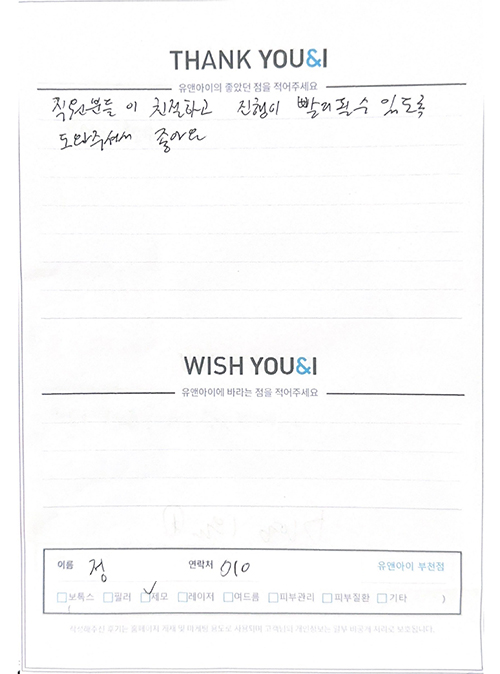 THANK YOU&I
유앤아이의 좋았던 점을 적어주세요
직원분들 이 친절하고 진행이 빨리 될 수 있도록
도와주셔서 좋아요
WISH YOU&I
유앤아이에 바라는 점을 적어주세요
이름 정 연락처 010 유앤아이 부천점
보톡스 필러 제모 레이저 여드름 피부관리 피부질환 기타 )